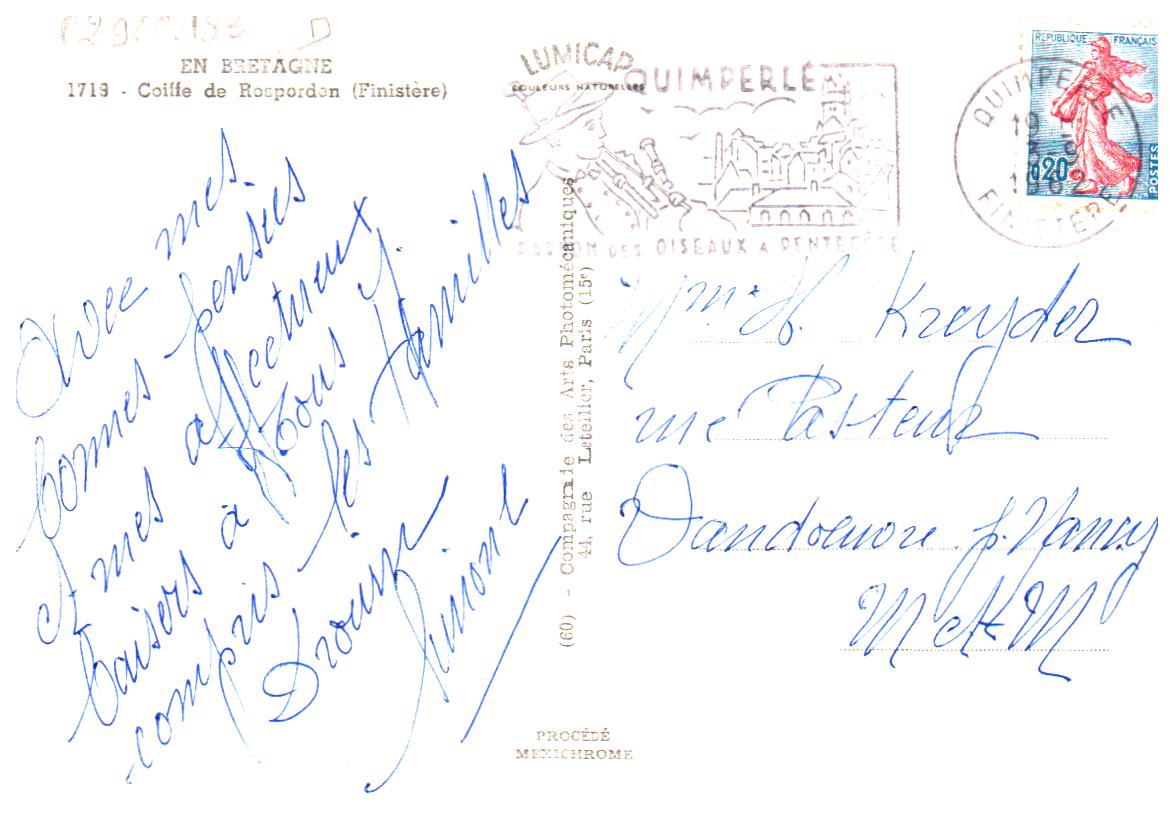 02900.183 D
EN BRETAGNE
1719 - Coiffe de Rosporden (Finistère)
LUMICAP
COULEURS NATURELLES
QUIMPERLÉ
PARDON DES OISEAUX A PENTECÔTE
QUIMPERLE
1962
FINISTERE
REPUBLIQUE FRANÇAISE
0,20
POSTES
Avec mes
bonnes pensées
et mes affectueux
baisers à tous y
compris les familles
Drouin
Simone
(60) - Compagnie des Arts Photomécaniques
44, rue Letellier, Paris (15e)
Mme H. Kreyder
rue Pasteur
Vandoeuvre p. Nancy
M et M
PROCÉDÉ
MEXICHROME